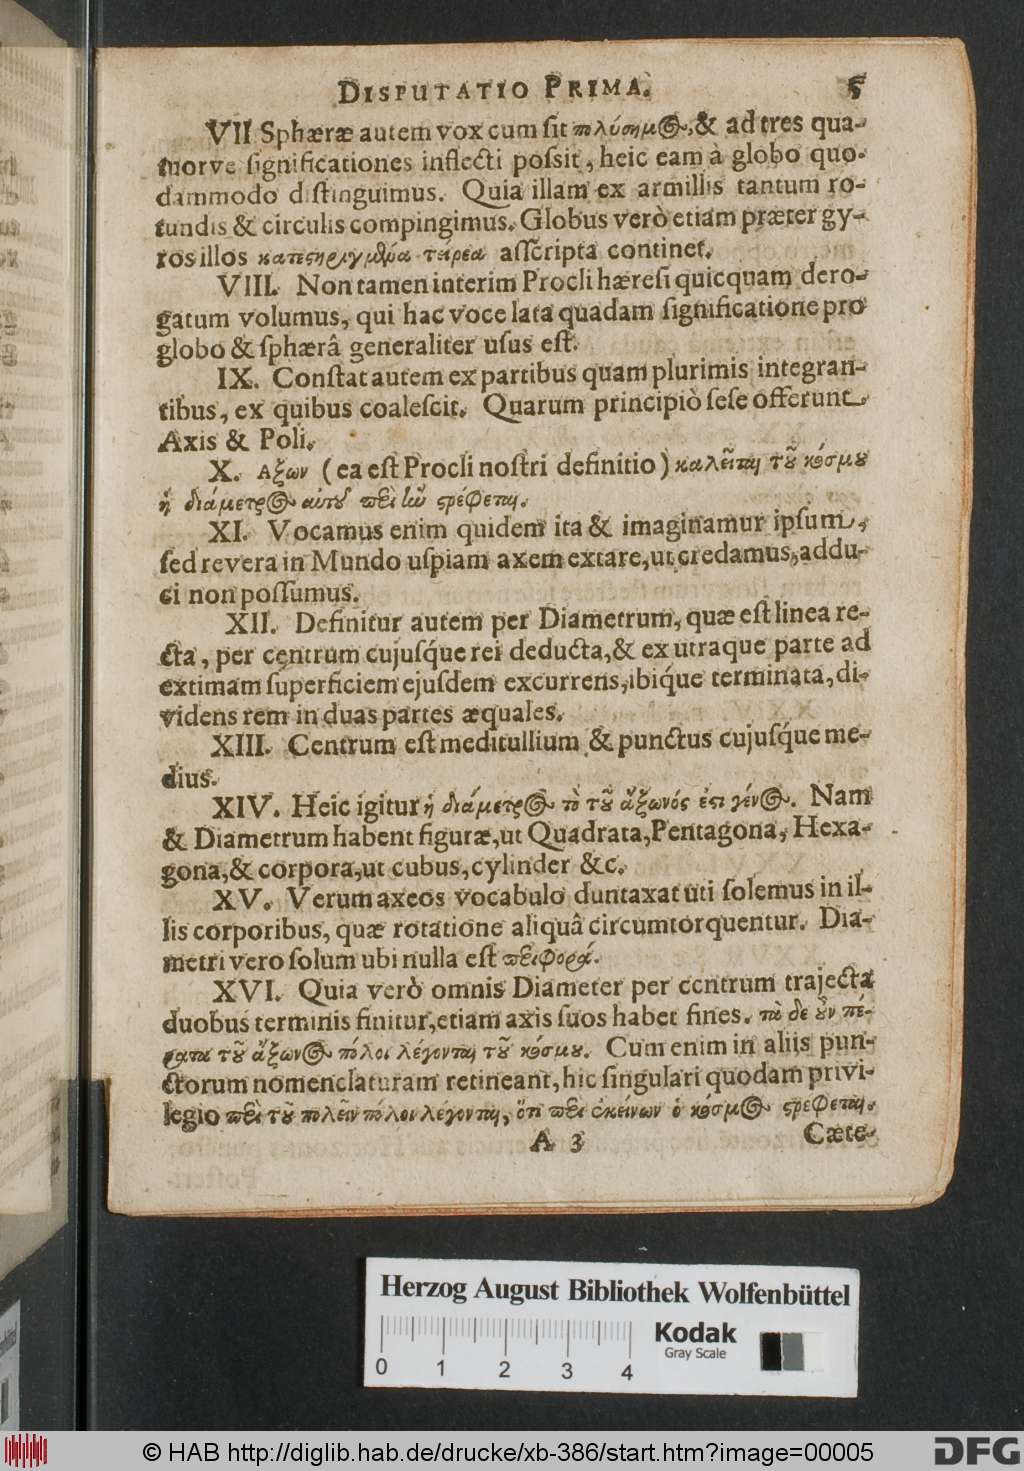 DISPUTATIO PRIMA. 5
VII Sphæræ autem vox cum sit πολύσημος, & ad tres qua-
tuorve significationes inflecti possit, heic eam à globo quo-
dammodo distinguimus. Quia illam ex armillis tantum ro-
tundis & circulis compingimus. Globus verò etiam præter gy-
ros illos κατεστηριγμένα τείρεα asscripta continet.
VIII. Non tamen interim Procli hæresi quicquam dero-
gatum volumus, qui hac voce lata quadam significatione pro
globo & sphærâ generaliter usus est.
IX. Constat autem ex partibus quam plurimis integran-
tibus, ex quibus coalescit. Quarum principiò sese offerunt
Axis & Poli.
X. Αξων (ea est Procli nostri definitio) καλεῖται τοῦ κόσμου
ἡ διάμετρος αὐτοῦ περὶ ἣν στρέφεται.
XI. Vocamus enim quidem ita & imaginamur ipsum,
sed revera in Mundo uspiam axem extare, ut credamus, addu-
ci non possumus.
XII. Definitur autem per Diametrum, quæ est linea re-
cta, per centrum cujusq́ue rei deducta, & ex utraque parte ad
extimam superficiem ejusdem excurrens, ibiq́ue terminata, di-
videns rem in duas partes æquales.
XIII. Centrum est meditullium & punctus cujusq́ue me-
dius.
XIV. Heic igitur ἡ διάμετρος τὸ τοῦ ἄξωνός ἐστι γένος. Nam
& Diametrum habent figuræ, ut Quadrata, Pentagona, Hexa-
gona, & corpora, ut cubus, cylinder &c.
XV. Verum axeos vocabulo duntaxat uti solemus in il-
lis corporibus, quæ rotatione aliquâ circumtorquentur. Dia-
metri vero solum ubi nulla est περιφορά.
XVI. Quia verò omnis Diameter per centrum trajecta
duobus terminis finitur, etiam axis suos habet fines. τὰ δε οὖν πέ-
ρατα τοῦ ἄξωνος πόλοι λέγονται τοῦ κόσμου. Cum enim in aliis pun-
ctorum nomenclaturam retineant, hic singulari quodam privi-
legio περὶ τοῦ πολεῖν πόλοι λέγονται, ὅτι περὶ ἐκείνων ὁ κόσμος στρέφεται.
A 3 Cæte-
Herzog August Bibliothek Wolfenbüttel
0 1 2 3 4
Kodak
Gray Scale
© HAB http://diglib.hab.de/drucke/xb-386/start.htm?image=00005
DFG